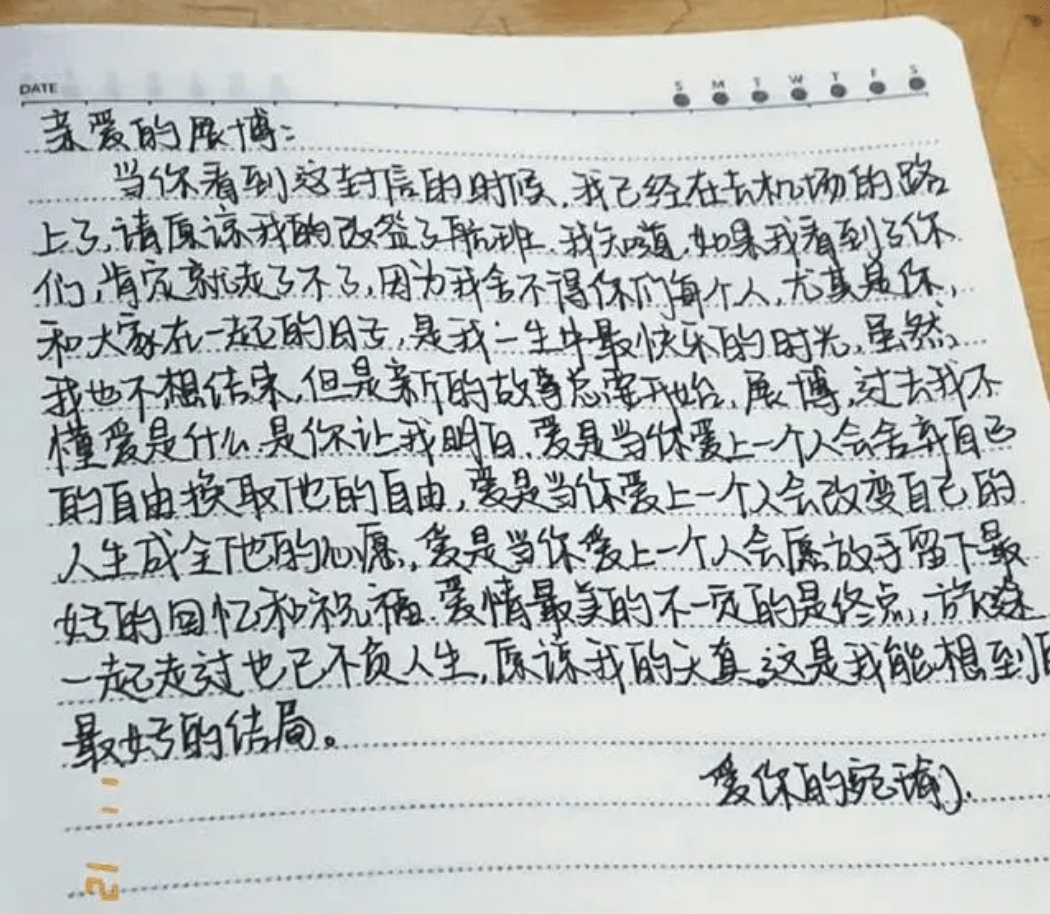 DATE
S M T W T F S
亲爱的展博:
当你看到这封信的时候,我已经在去机场的路
上了,请原谅我的改签了航班.我知道,如果我看到了你
们,肯定就走了不了,因为我舍不得你们每个人,尤其是你,
和大家在一起的日子,是我一生中最快乐的时光,虽然,
我也不想结束,但是新的故事总要开始,展博,过去我不
懂爱是什么.是你让我明白,爱是当你爱上一个人会舍弃自己
的自由换取他的自由,爱是当你爱上一个人会改变自己的
人生成全他的心愿,爱是当你爱上一个人会愿放手留下最
好的回忆和祝福.爱情最美的不一定的是终点,旅途
一起走过也已不负人生,原谅我的天真,这是我能想到
最好的结局。
爱你的宛瑜.
11
12